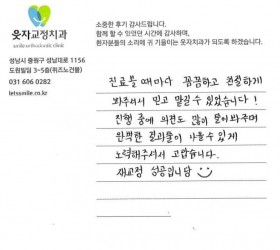 웃자교정치과
smile orthodontic clinic
성남시 중원구 성남대로 1156
도원빌딩 3~5층(위즈노건물)
031 606 0282
letssmile.co.kr
소중한 후기 감사드립니다.
함께 할 수 있었던 시간에 감사하며,
환자분들의 소리에 귀 기울이는 웃자치과가 되도록 하겠습니다.
진료볼 때마다 꼼꼼하고 친절하게
봐주셔서 믿고 맡길 수 있었습니다!
진행 중에 의견도 많이 물어봐주며
완벽한 결과물이 나올 수 있게
노력해주셔서 고맙습니다.
재교정 성공입니당